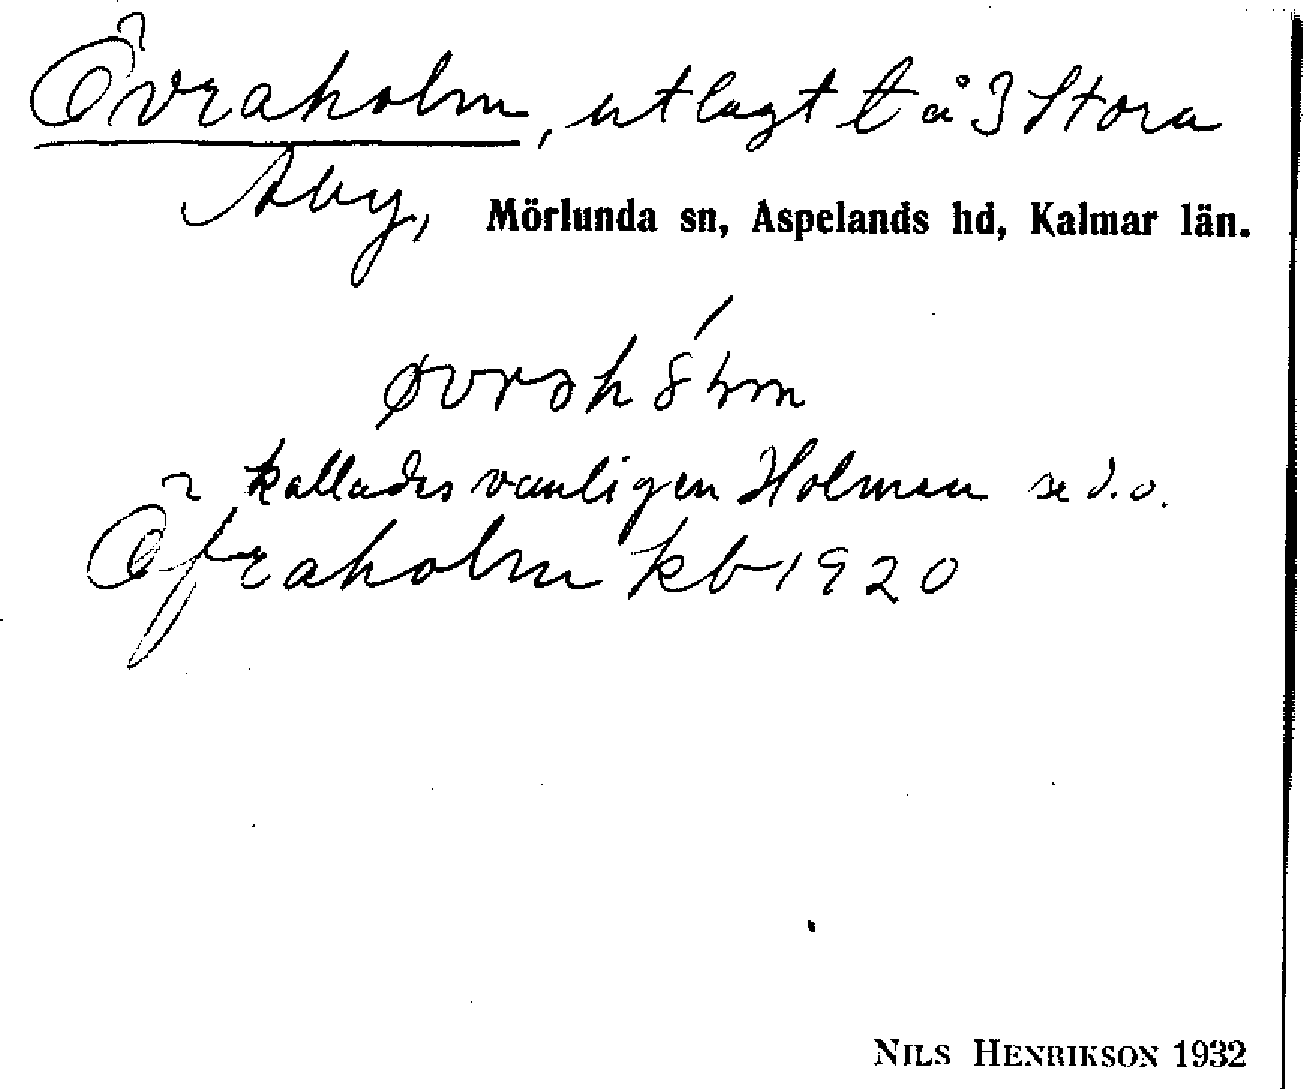 Övraholm, utlagt t å 3 Stora
Åby, Mörlunda sn, Aspelands hd, Kalmar län.
kallades vanligen Holmen se d.o.
Öfraholm kb 1920
NILS HENRIKSON 1932